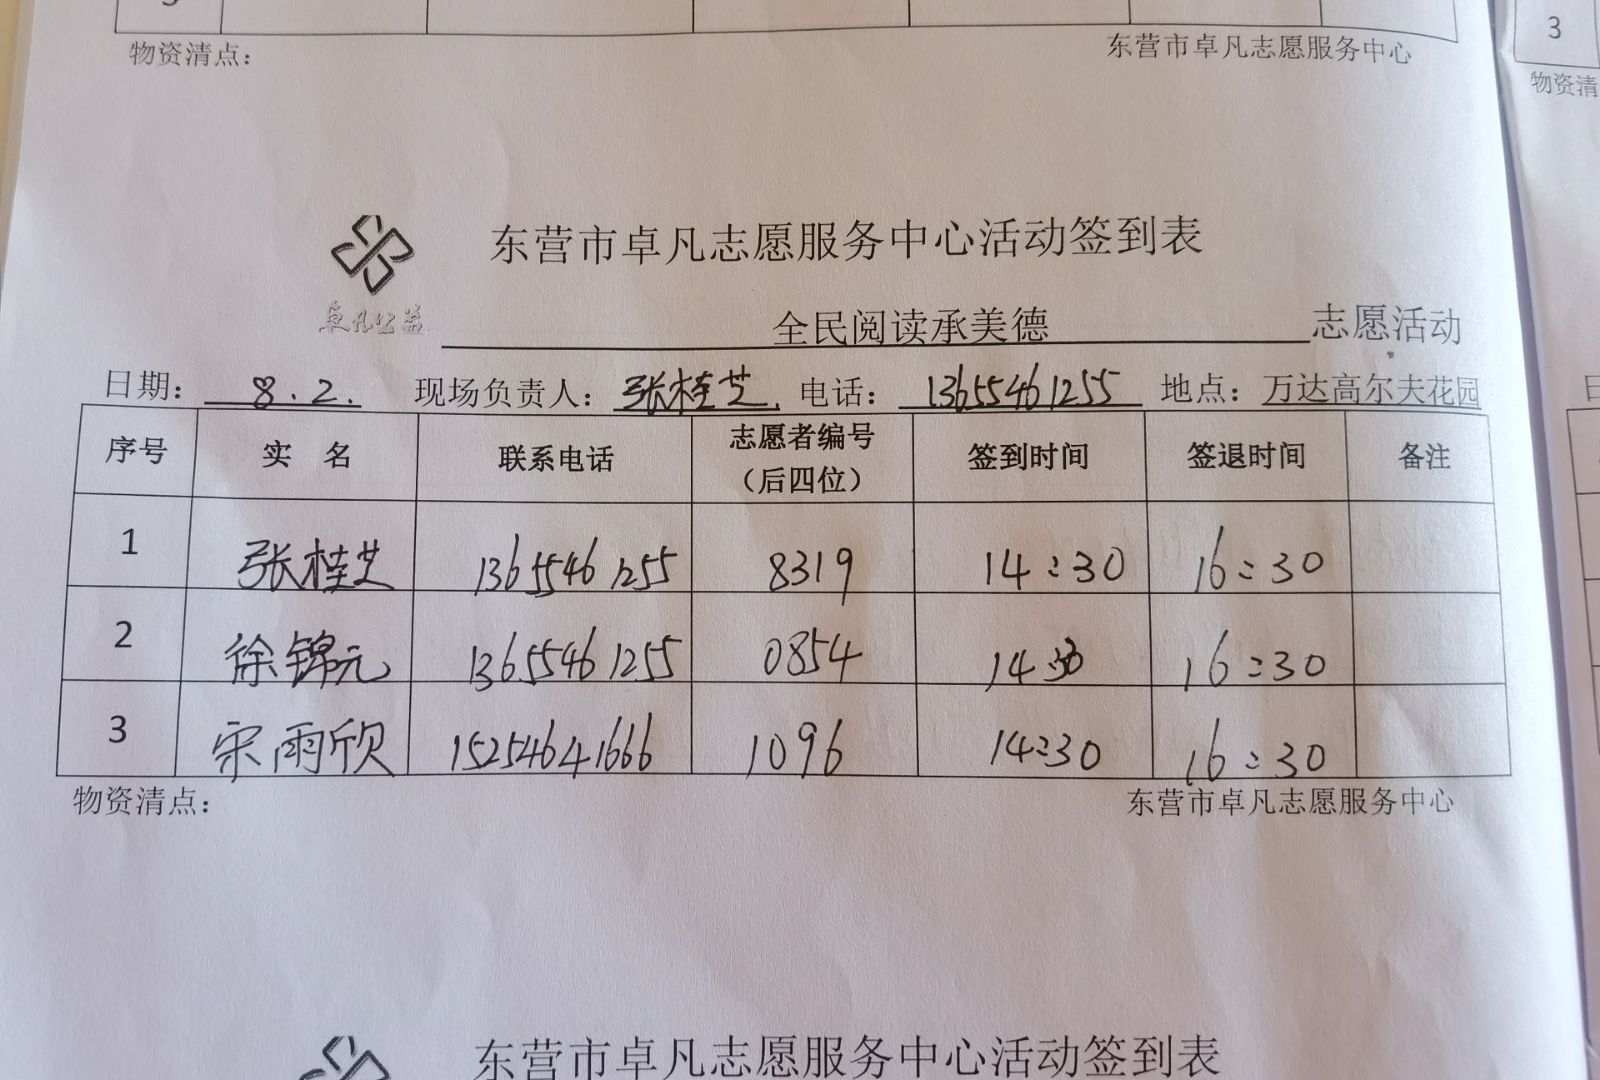 物资清点：
东营市卓凡志愿服务中心
3
物资清
东营市卓凡志愿服务中心活动签到表
卓凡公益
全民阅读承美德 志愿活动
日期： 8.2. 现场负责人：张桂芝 电话：13655461255 地点：万达高尔夫花园
序号 实 名 联系电话 志愿者编号（后四位） 签到时间 签退时间 备注
1 张桂芝 13655461255 8319 14:30 16:30
2 徐锦元 13655461255 0854 14:30 16:30
3 宋雨欣 15254641666 1096 14:30 16:30
物资清点：
东营市卓凡志愿服务中心
东营市卓凡志愿服务中心活动签到表